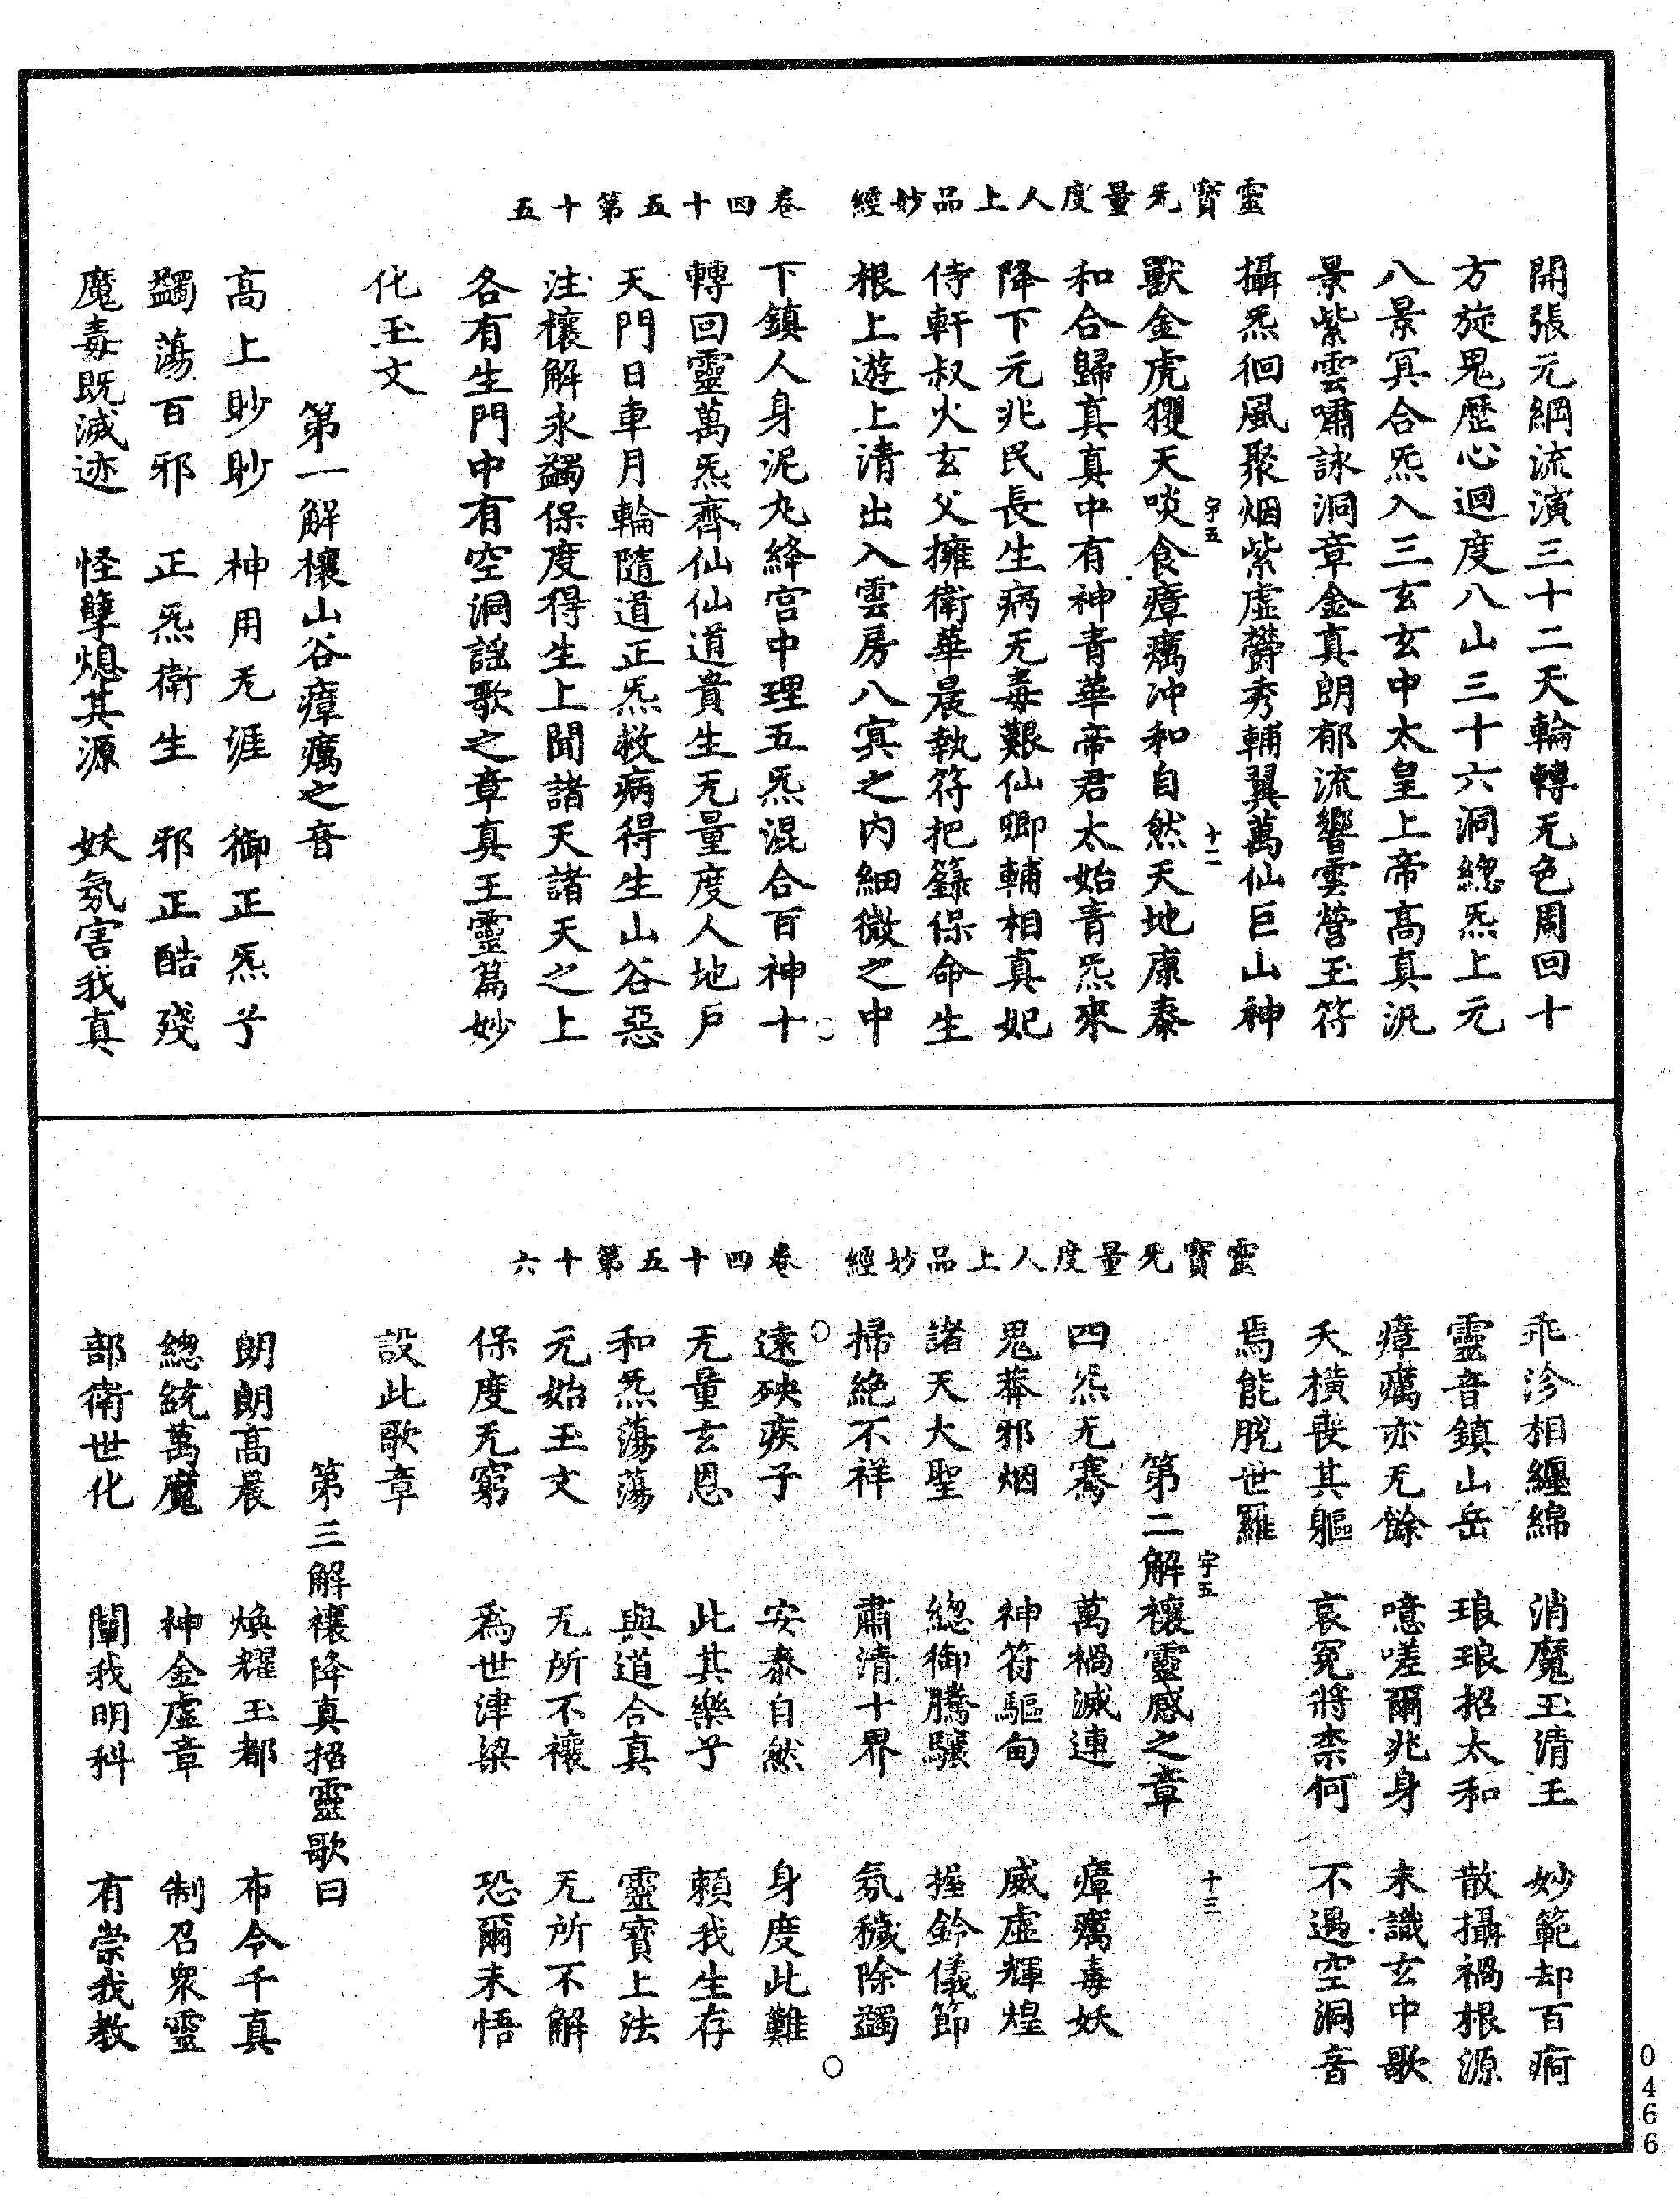 靈寶无量度人上品妙經　卷四十五第十五
開張元綱流演三十二天輪轉无色周回十
方旋鬼歷心迴度八山三十六洞總炁上元
八景冥合炁入三玄玄中太皇上帝高真汎
景紫雲嘯詠洞章金真朗郁流響雲營玉符
攝炁徊風聚烟紫虛欝秀輔翼萬仙巨山神
宇五　十二
獸金虎玃天啖食瘴癘冲和自然天地康泰
和合歸真真中有神青華帝君太始青炁來
降下元兆民長生病无毒艱仙卿輔相真妃
侍軒叔火玄父擁衛華晨執符把籙保命生
根上遊上清出入雲房八冥之內細微之中
下鎮人身泥丸絳宮中理五炁混合百神十
轉回靈萬炁齊仙仙道貴生无量度人地戶
天門日車月輪隨道正炁救病得生山谷惡
注禳解永蠲保度得生上聞諸天諸天之上
各有生門中有空洞謡歌之章真王靈篇妙
化玉文
第一解禳山谷瘴癘之音
高上眇眇　神用无涯　御正炁兮
蠲蕩百邪　正炁衛生　邪正酷殘
魔毒既滅迹　怪孽熄其源　妖氛害我真
靈寶无量度人上品妙經　卷四十五第十六
乖沴相纏綿　消魔玉清王　妙範却百痾
靈音鎮山岳　琅琅招太和　散攝禍根源
瘴癘亦无餘　噫嗟爾兆身　未識玄中歌
夭橫喪其軀　哀冤將柰何　不遇空洞音
焉能脫世羅
宇五　十三
第二解禳靈感之章
四炁无騫　萬禍滅連　瘴癘毒妖
鬼莽邪烟　神符驅甸　威虛輝煌
諸天大聖　總御騰驤　握鈴儀節
掃絕不祥　肅清十界　氛穢除蠲
遠殃疾子　安泰自然　身度此難
无量玄恩　此其樂兮　賴我生存
和炁蕩蕩　與道合真　靈寶上法
元始玉文　无所不禳　无所不解
保度无窮　為世津梁　恐爾未悟
設此歌章
第三解禳降真招靈歌曰
朗朗高晨　煥耀玉都　布令千真
總統萬魔　神金虛章　制召眾靈
部衛世化　闡我明科　有崇我教
0466